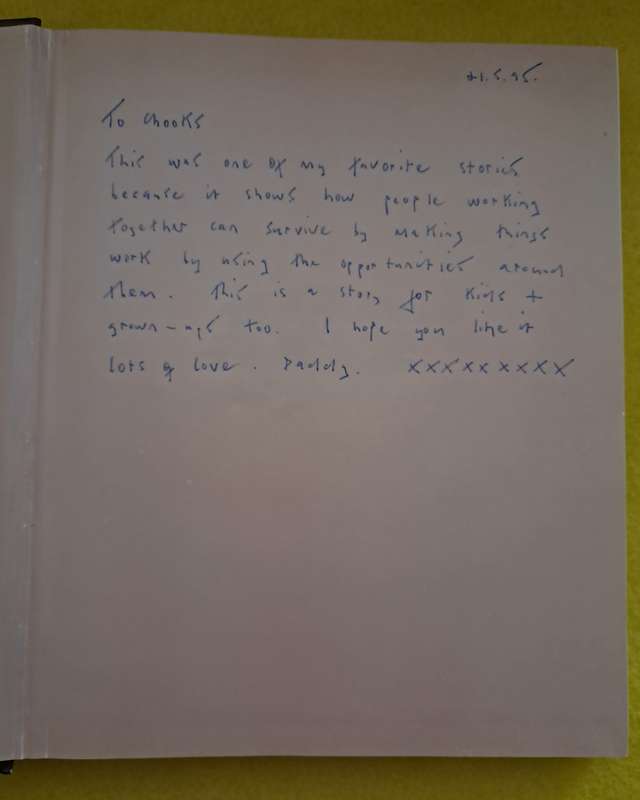 21.5.95.
To Chooks
This was one of my favorite stories
because it shows how people working
together can survive by making things
work by using the opportunities around
them. This is a story for kids +
grown-ups too. I hope you like it
lots of love. Daddy. xxxxxxxxx